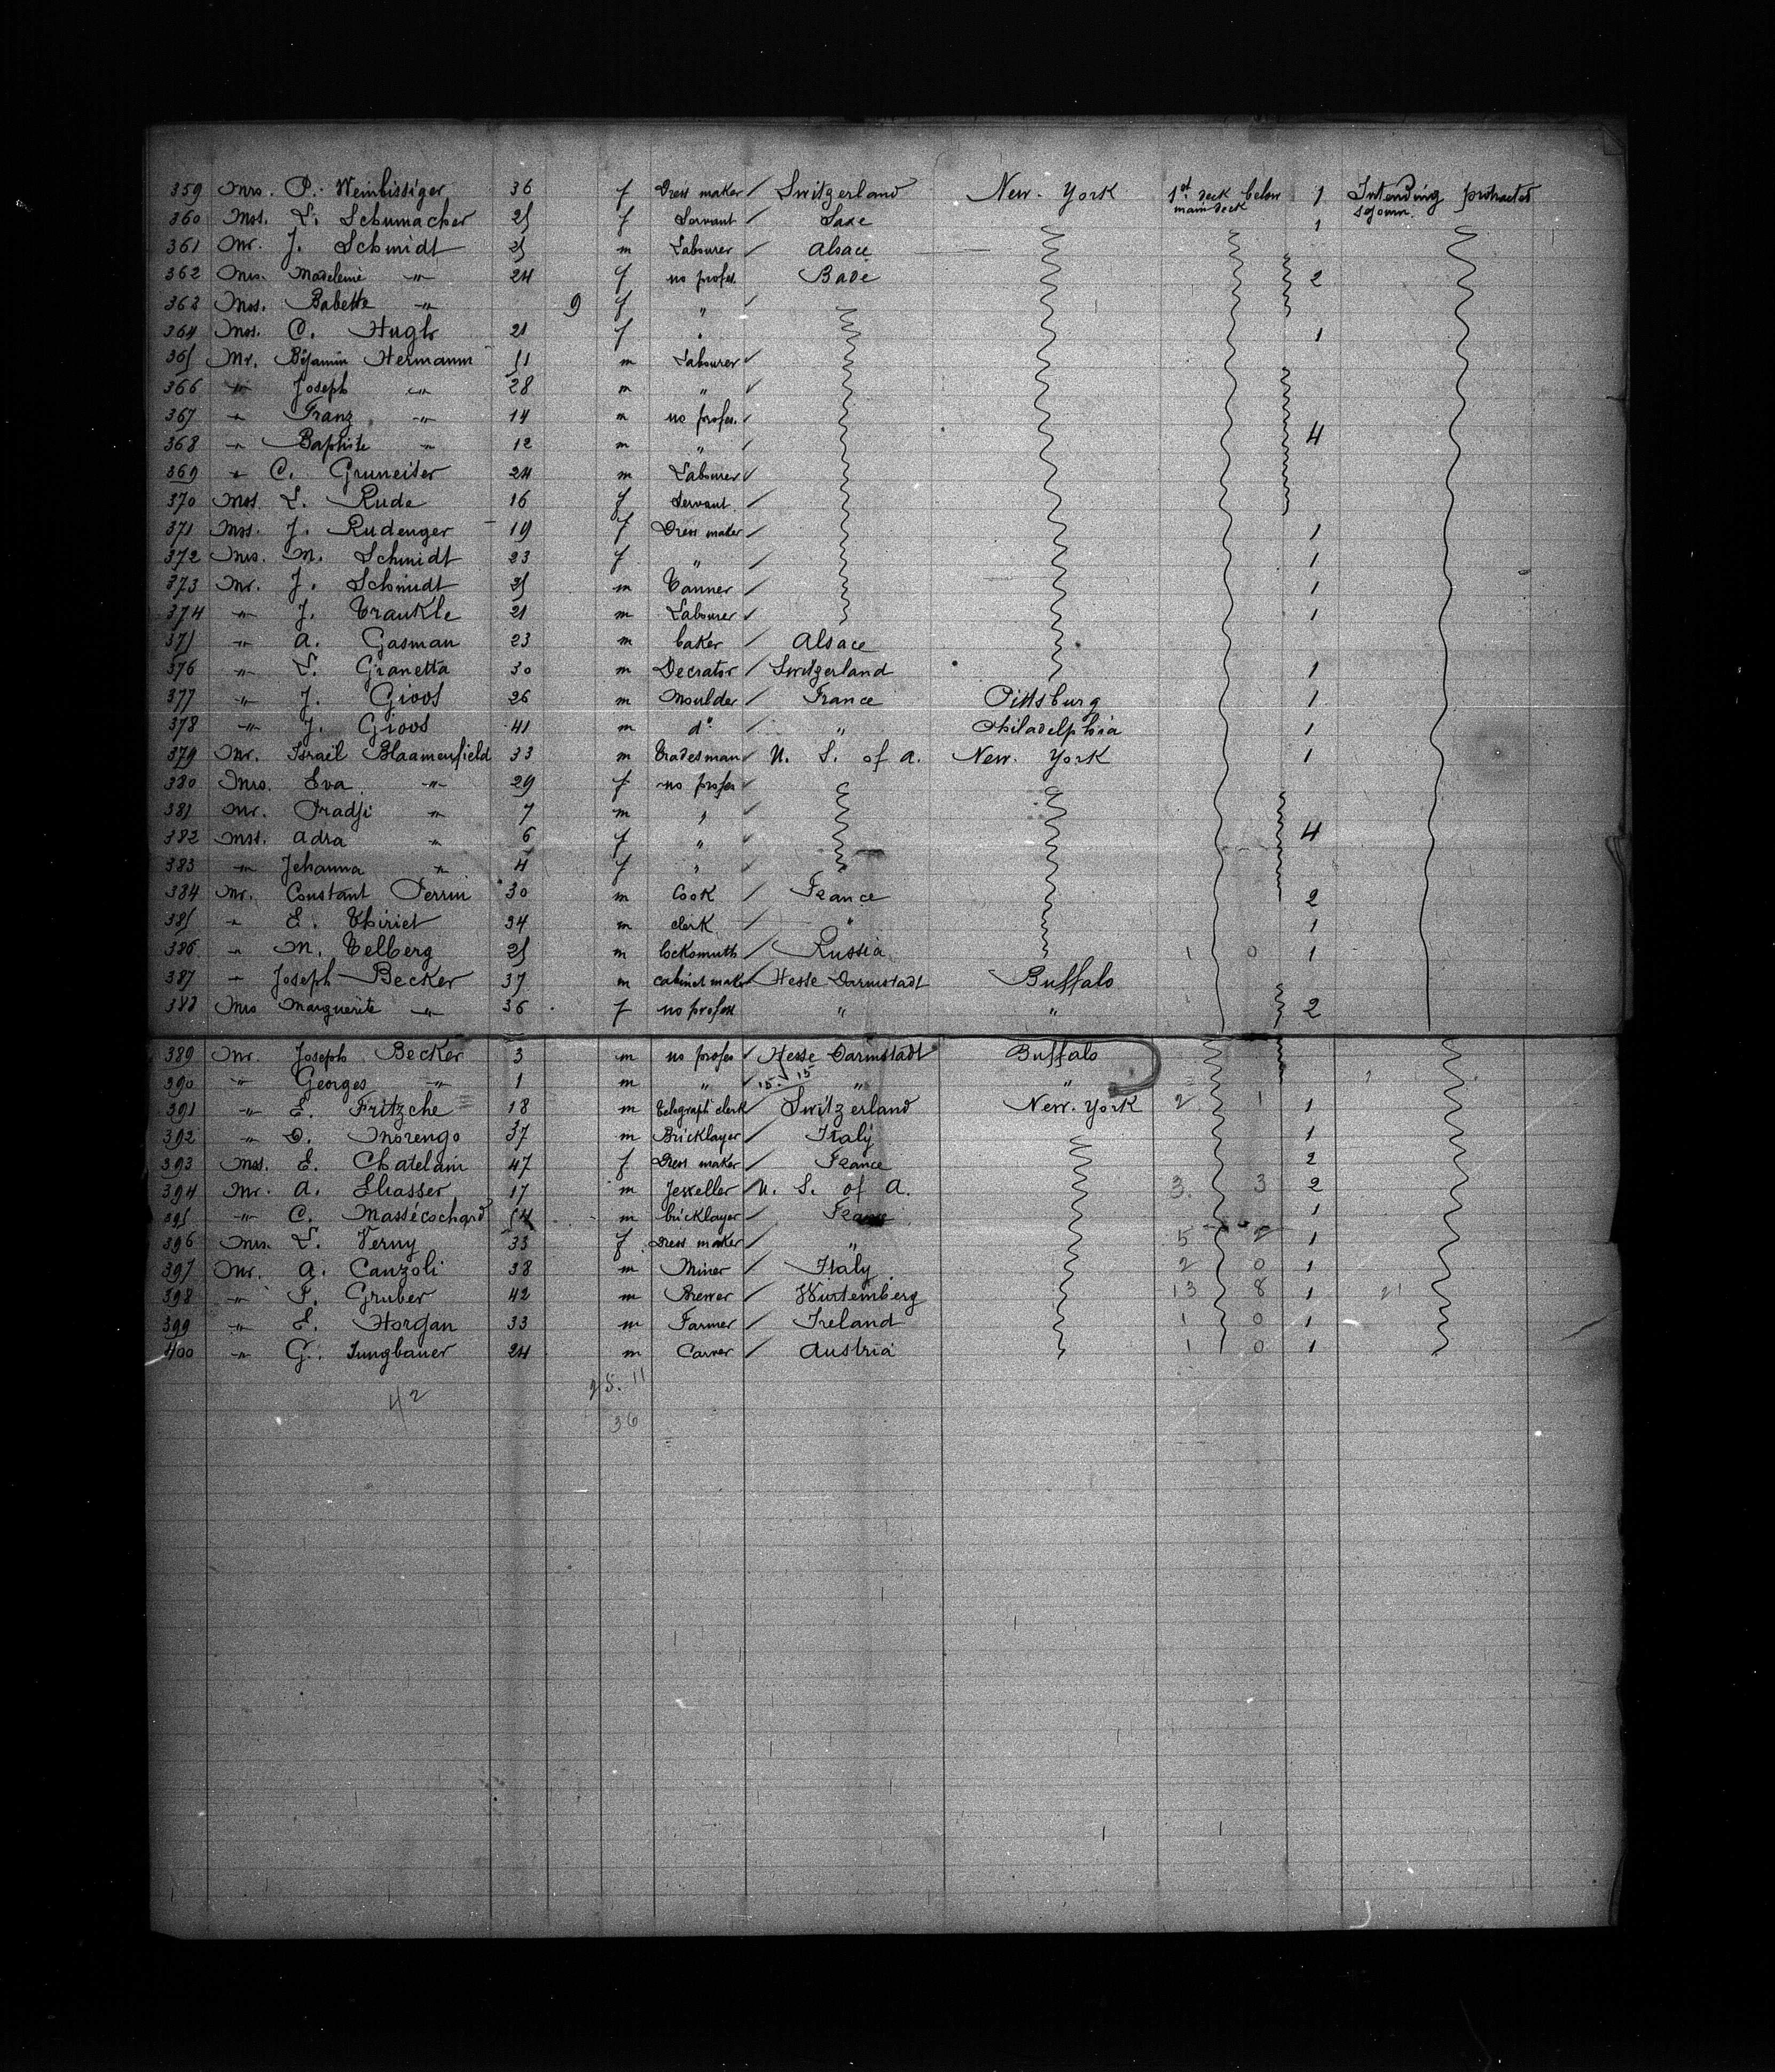 359 Mrs. P. Weinbissiger 36 f Dress maker / Switzerland New-York 1st deck below main deck 1 Intending protracted sejourn
360 Mss. L. Schumacher 25 f Servant / Saxe 1
361 Mr. J. Schmidt 25 m Labourer / Alsace
362 Mrs. Madeleine -"- 24 f no profes. / Bade 2
363 Mss. Babette -"- 9 f " /
364 Mss. C. Hugh 21 f " / 1
365 Mr. Bijamin Hermann 51 m Labourer /
366 -"- Joseph -"- 28 m " /
367 -"- Franz -"- 14 m no profes. /
368 -"- Baptiste -"- 12 m " / 4
369 -"- C. Gruneiser 24 m Labourer /
370 Mss. L. Rude 16 f Servant /
371 Mss. J. Rudenger 19 f Dress maker / 1
372 Mrs. M. Schmidt 23 f " / 1
373 Mr. J. Schmidt 25 m Tanner / 1
374 -"- J. Traukle 21 m Labourer / 1
375 -"- A. Gasman 23 m baker / Alsace
376 -"- L. Granetta 30 m Decrator / Switzerland 1
377 -"- J. Gioos 26 m Moulder / France Pittsburg 1
378 -"- J. Gioos 41 m d° / " Philadelphia 1
379 Mr. Israël Blaamenfield 33 m Tradesman / U. S. of A. New-York 1
380 Mrs. Eva -"- 29 f no profes /
381 Mr. Fradji -"- 7 m " /
382 Mss. Adra -"- 6 f " / 4
383 -"- Jehanna -"- 4 f " /
384 Mr. Constant Perrin 30 m Cook / France 2
385 -"- E. Thiriet 34 m clerk / " 1
386 -"- M. Telberg 25 m locksmuth / Russia 1 0 1
387 -"- Joseph Becker 37 m cabinet maker / Hesse Darmstadt Buffalo
388 Mrs Marguerite -"- 36 f no profess " " 2
389 Mr. Joseph Becker 3 m no profes / Hesse Darmstadt Buffalo
390 -"- Georges -"- 1 m " / 15. 15 " "
391 -"- E. Fritzche 18 m telegraph clerk / Switzerland New-York 2 1 1
392 -"- D. Morengo 37 m Bricklayer / Italy 1
393 Mss. E. Chatelain 47 f Dress maker / France 2
394 Mr. A. Shasser 17 m Jeweller / U. S. of A. 3 3 2
395 -"- C. Massécochard 54 m bricklayer / France 1
396 Mrs. L. Verny 33 f Dress maker / " 5 2 1
397 Mr. A. Canzoli 38 m Miner / Italy 2 0 1
398 -"- F. Gruber 42 m Brewer / Wurtemberg 13 8 1 21
399 -"- E. Horgan 33 m Farmer / Ireland 1 0 1
400 -"- G. Jungbauer 24 m Carver / Austria 1 0 1
42 25. 11
36